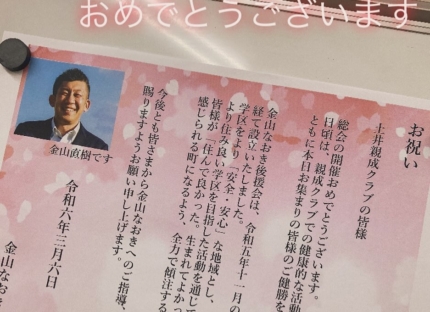 おめでとうございます
お祝い
土井親成クラブの皆様
総会の開催おめでとうございます。
日頃は、親成クラブでの健康的な活動
ともに本日お集まりの皆様のご健勝を
金山なおき後援会は、令和五年十一月の
経て設立いたしました。
学区をより「安全・安心」な地域とし、
より住み良い学区を目指した活動を通じて
皆様が「住んで良かった、生まれてよかっ
感じられる町になるよう、全力で傾注する
今後とも皆さまから金山なおきへのご指導、
賜りますようお願い申し上げます。
令和六年三月六日
金山なおき
金山直樹です